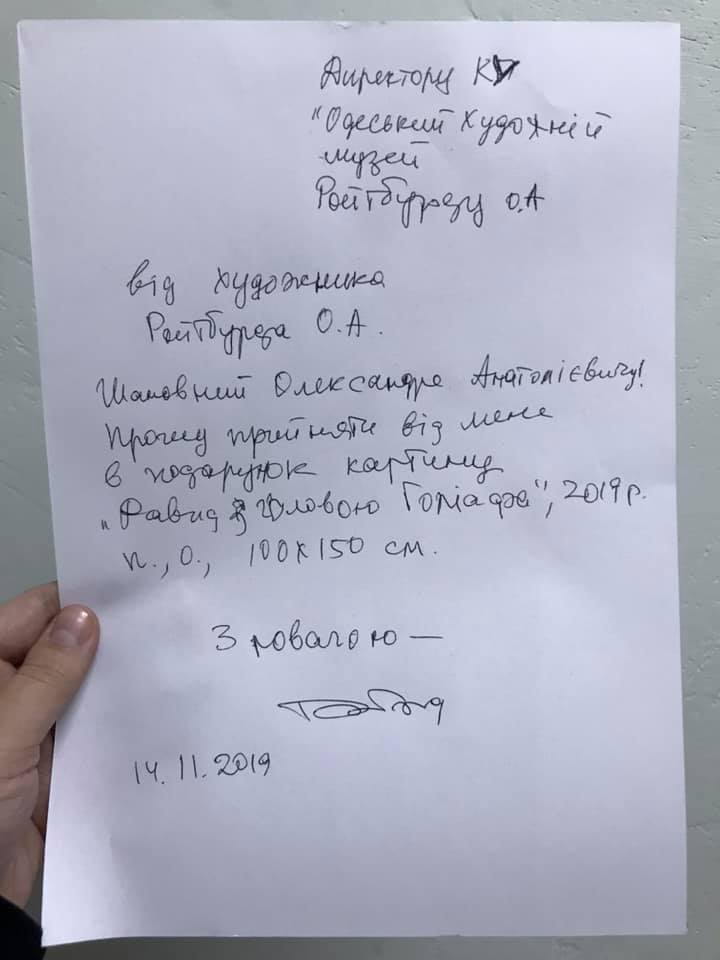 Директору КУ
"Одеський художній
музей
Ройтбурду О.А
від художника
Ройтбурда О.А.
Шановний Олександре Анатолієвичу!
Прошу прийняти від мене
в подарунок картину
"Давид з головою Голіафа", 2019 р.
п., о., 100х150 см.
З повагою —
14.11.2019